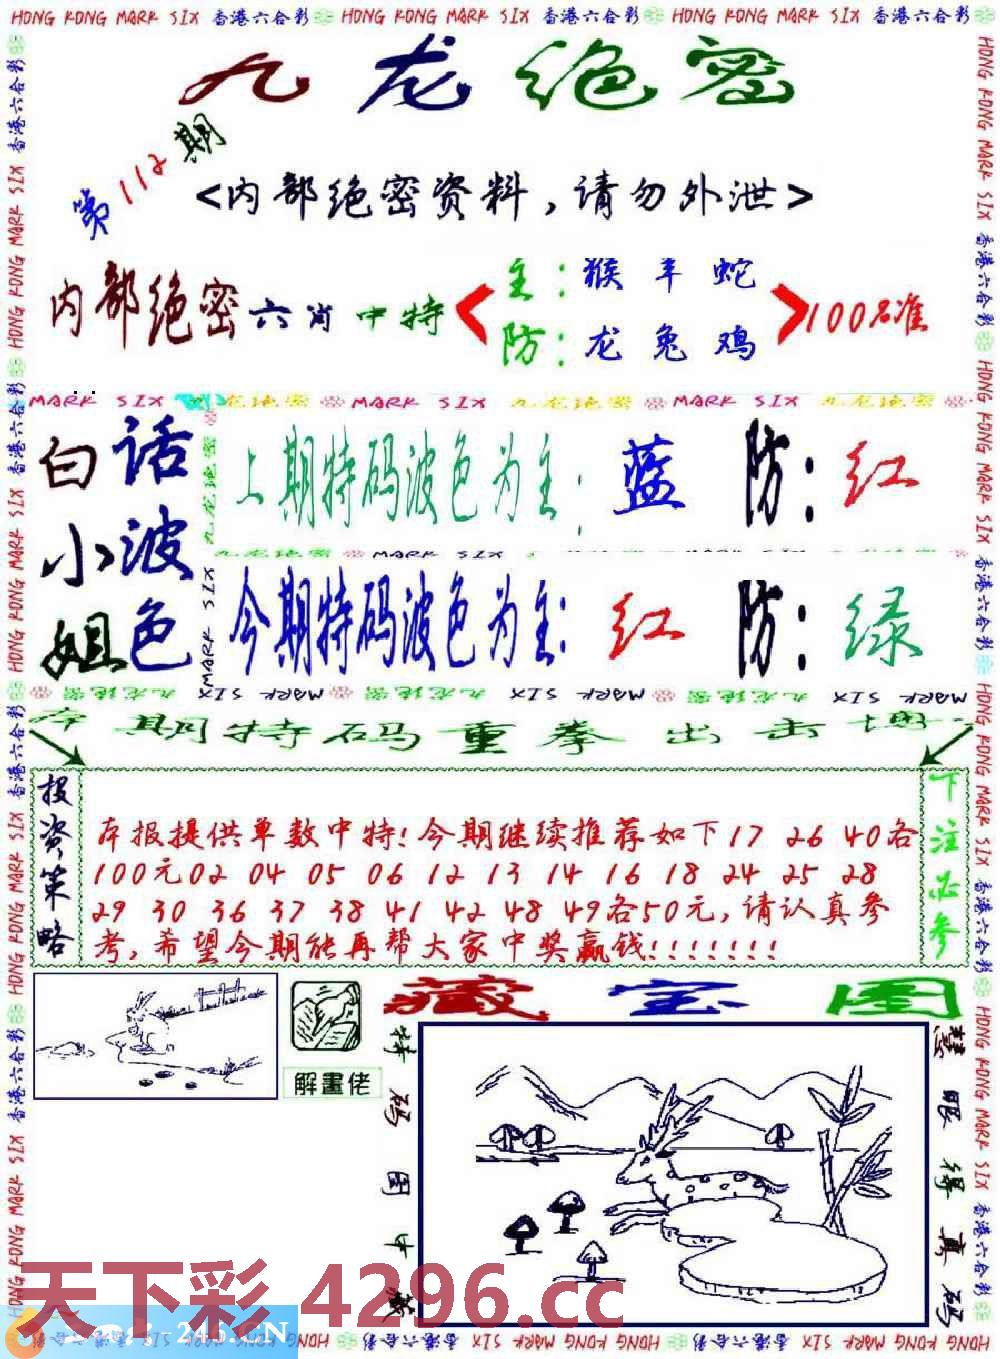 HONG KONG MARK SIX 香港六合彩 HONG KONG MARK SIX 香港六合彩 HONG KONG MARK SIX 香港六合彩
九龙绝密
第112期
<内部绝密资料，请勿外泄>
内部绝密六肖中特
主：猴羊蛇
防：龙兔鸡
100%准
MARK SIX 九龙绝密 MARK SIX 九龙绝密 MARK SIX 九龙绝密
白小姐
话波色
上期特码波色为主：蓝 防：红
九龙绝密 MARK SIX 九龙绝密 MARK SIX 九龙绝密
今期特码波色为主：红 防：绿
本期特码重拳出击
投资策略
本报提供单数中特！今期继续推荐如下17 26 40各
100元02 04 05 06 12 13 14 16 18 24 25 28
29 30 36 37 38 41 42 48 49各50元，请认真参
考，希望今期能再帮大家中奖赢钱！！！！！！！
下注必参
解畫佬
藏宝图
特码图中藏
慧眼得真码
天下彩 4296.cc
246.CN